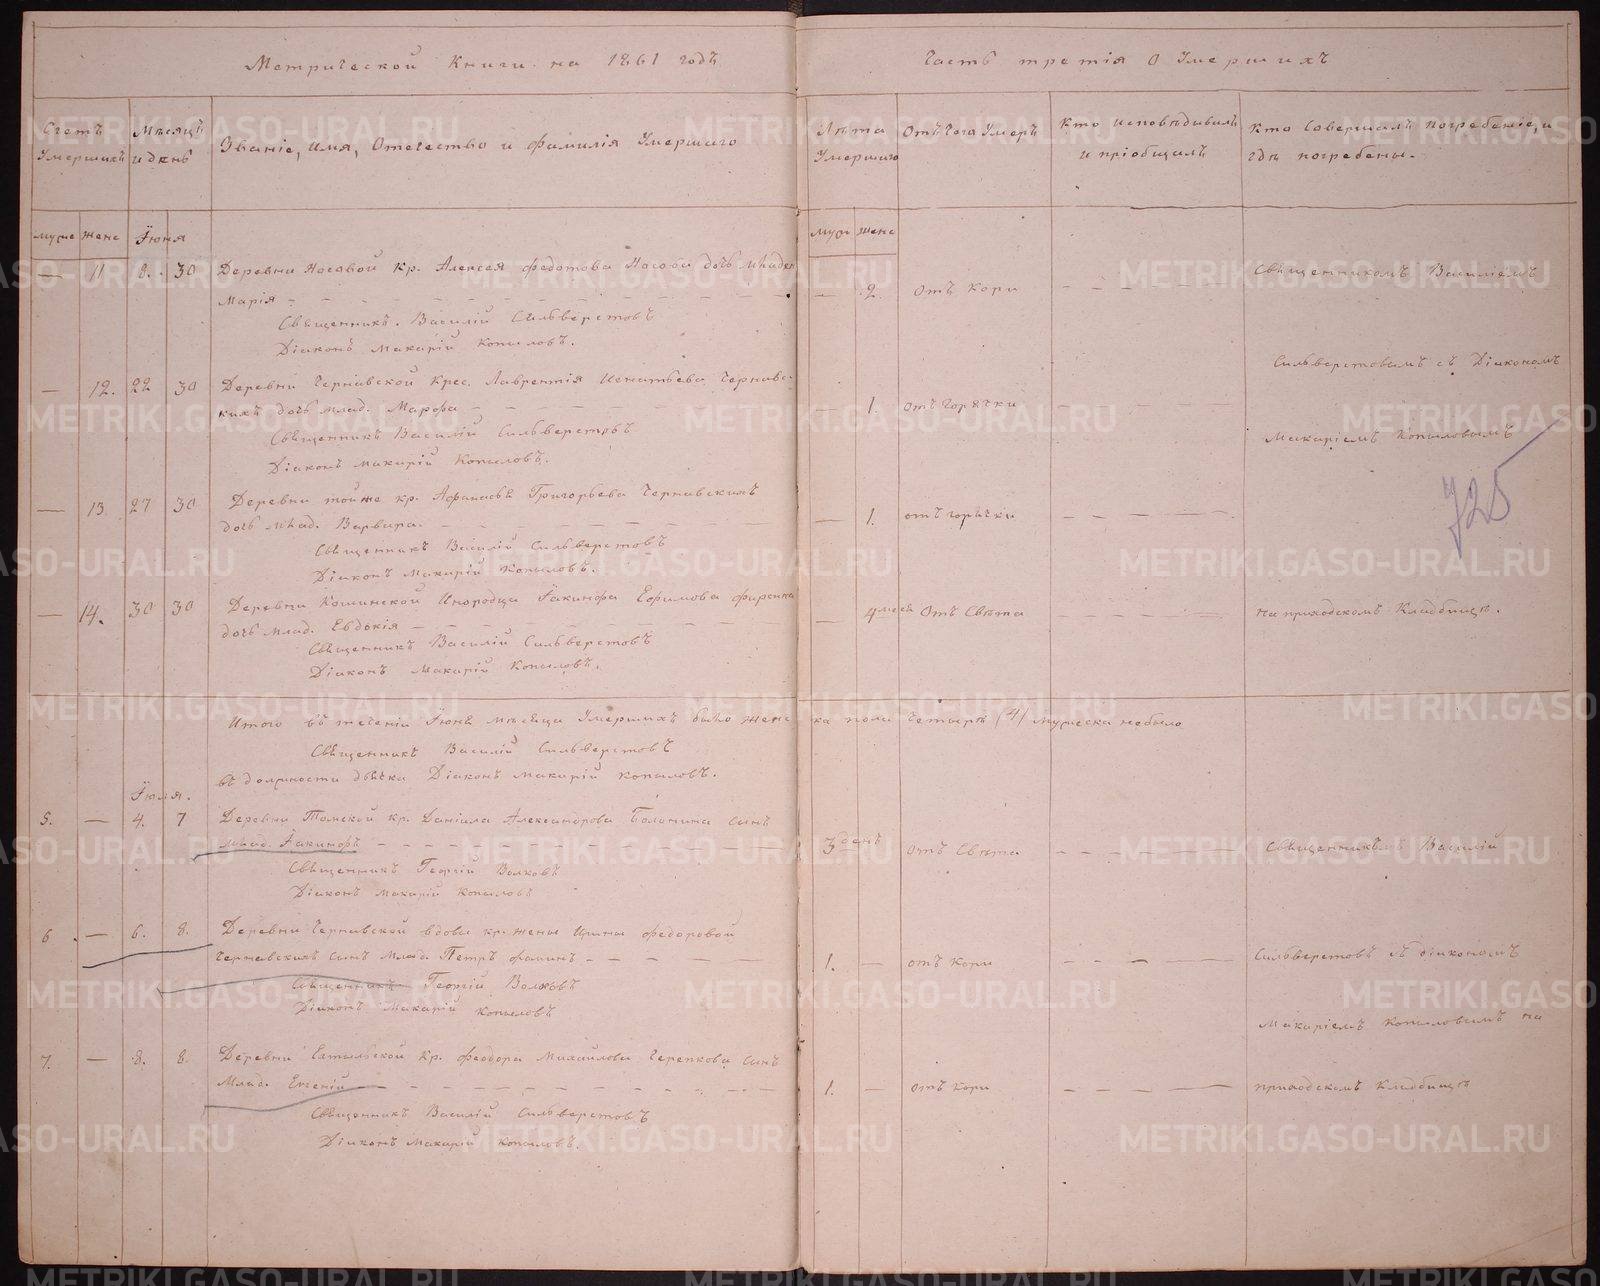 Метрической Книги на 1861 годъ
Часть третія О Умершихъ
Счетъ Умершихъ
Мѣсяцъ и день
Званіе, Имя, Отечество и фамилія Умершаго
Лѣта Умершаго
Отъ чего Умеръ
Кто исповѣдывалъ и пріобщалъ
Кто Совершалъ погребеніе, и гдѣ погребены.
муже женс Іюня
муж женс
— 11 8. 30 Деревни Носовой кр. Алексея Федотова Носова дочь младен
Марія — 2. отъ Кори
Священникъ. Василій Сильверстовъ
Діаконъ Макарій Копыловъ.
Священникомъ Василіемъ
Сильверстовымъ съ Діакономъ
— 12. 22 30 Деревни Чернавской Крес. Лаврентія Игнатьева Чернавс-
кихъ дочь млад. Марфа — 1. отъ горячки
Священникъ Василій Сильверстовъ
Діаконъ Макарій Копыловъ.
Макаріемъ Копыловымъ
725
— 13 27 30 Деревни тойже кр. Афанасья Григорьева Чернавскихъ
дочь млад. Варвара. — 1. отъ горячки
Священникъ Василій Сильверстовъ
Діаконъ Макарій Копыловъ.
— 14. 30 30 Деревни Кошинской Инородца Іакинфа Ефимова
дочь млад. Евдокія — 4 отъ Свѣта
Священникъ Василій Сильверстовъ
Діаконъ Макарій Копыловъ.
на приходскомъ Кладбищѣ.
Итого въ теченіи Іюня мѣсяца Умершихъ было женс
ка пола Четыре (4) мужеска небыло
Священникъ Василій Сильверстовъ
въ должности дьячка Діаконъ Макарій Копыловъ.
Іюля.
5. — 4. 7 Деревни Томской кр. Даніила Александрова Болонина сынъ
Млад. Іакинфъ — 3 день отъ Свѣта
Священникъ Георгій Волковъ
Діаконъ Макарій Копыловъ
Священникъ Василій
6 — 6. 8. Деревни Чернавской вдовы кр. жены Ирины Федоровой
Чернавскихъ сынъ Млад. Петръ — 1. — отъ Кори
Священникъ Георгій Волковъ
Діаконъ Макарій Копыловъ
Сильверстовъ съ діакономъ
Макаріемъ Копыловымъ на
7. — 8. 8. Деревни кр. Феодора Михайлова Черепкова Сынъ
Млад. Евгеній — 1. — отъ Кори
Священникъ Василій Сильверстовъ
Діаконъ Макарій Копыловъ.
приходскомъ Кладбищѣ
METRIKI.GASO-URAL.RU